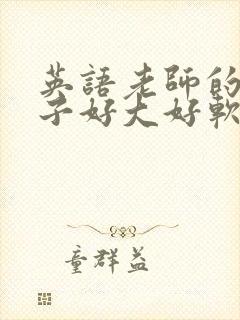 英語老師的
子好大好軟
童群益